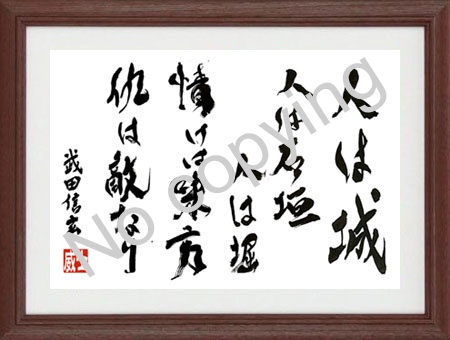 人は城
人は石垣
人は堀
情けは味方
仇は敵なり
武田信玄
No copying